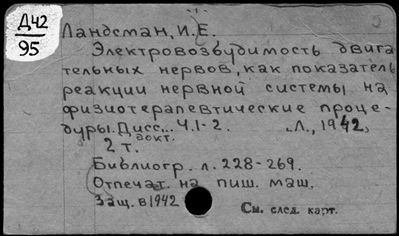 Д42
95
Ландсман, И.Е.
Электровозбудимость двига
тельных нервов, как показатель
реакции нервной системы на
физиотерапевтические проце-
дуры. Дисс... Ч.1-2. Л., 1942,
докт.
2 т.
Библиогр. л. 228-269.
Отпечат. на пиш. маш.
Защ. в 1942
См. след. карт.